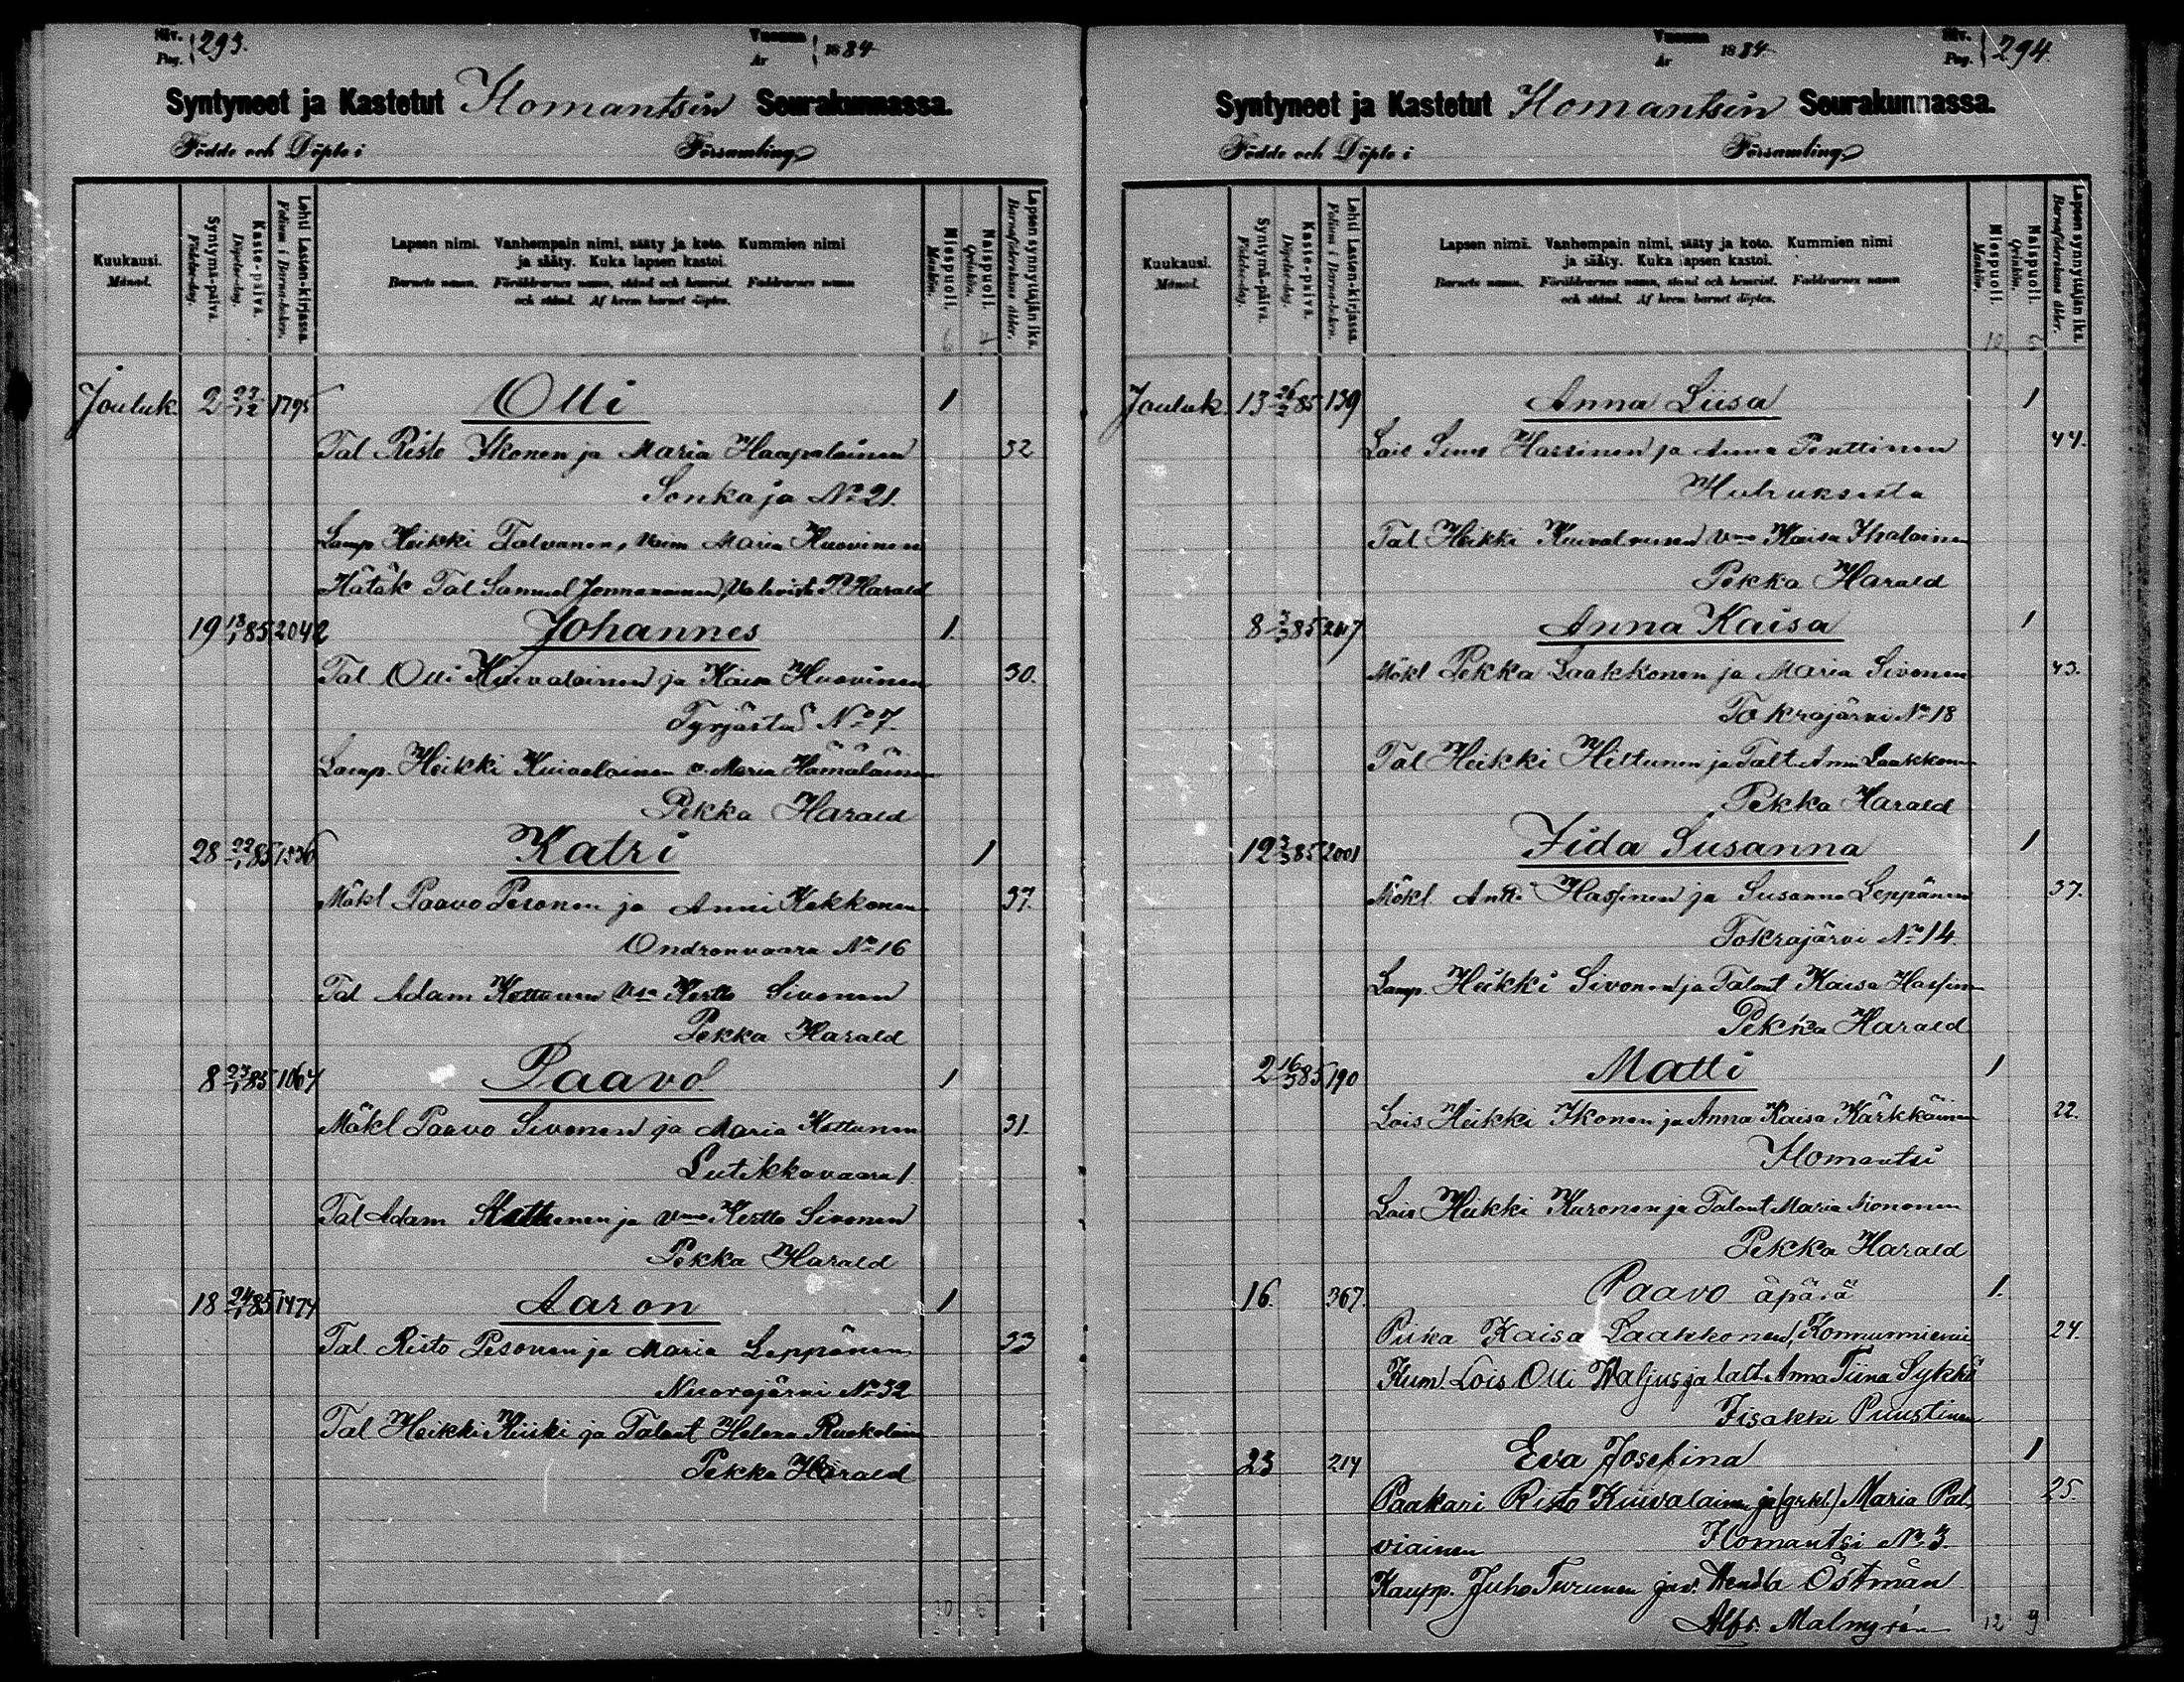 Siv. Pag. 293. Vuonna År 1884
Syntyneet ja Kastetut Ilomantsin Seurakunnassa.
Födde och Döpte i Församling
Kuukausi. Månad.
Syntymä-päivä. Födelse-dag.
Kaste-päivä. Döpelse-dag.
Lehti Lasten-kirjassa. Folium i Barna-boken.
Lapsen nimi. Vanhempain nimi, sääty ja koto. Kummien nimi
ja sääty. Kuka lapsen kastoi.
Barnets namn. Föräldrarnes namn, stånd och hemvist. Faddrarnes namn
och stånd. Af hvem barnet döptes.
Miespuoli. Mankön.
Naispuoli. Qvinkön.
Lapsen synnyttäjän ikä. Barnaföderskans ålder.
Jouluk. 2 27/12 1795 Olli 1
Tal Risto Ikonen ja Maria Haapalainen 32
Sonkaja No 21.
Lamp Heikki Talvanen, Vaim Maria Huovinen
Hätäk Tal Samuel Vahvisti P. Harald
19 18/1 85 2042 Johannes 1.
Tal Olli Kuivalainen ja Kaisa Huovinen 30.
Tyrjästä No 7.
Lamp. Heikki Kuivalainen v. Maria Hämäläinen
Pekka Harald
28 22/1 85 1336 Katri 1
Mäkl Paavo Pesonen ja Anni Kekkonen 37.
Ondronvaara No 16
Tal Adam Kettunen Vsa Kertto Sivonen
Pekka Harald
8 23/1 85 1067 Paavo 1
Mäkl Paavo Sivonen ja Maria Kettunen 31.
Lutikkavaara 1.
Tal Adam Kettunen ja Vmo Kertto Sivonen
Pekka Harald
18 24/1 85 1474 Aaron 1
Tal. Risto Pesonen ja Maria Leppänen 33
Nuorajärvi No 32
Tal Heikki Kiiski ja Talont Helena Ruokolain
Pekka Harald
10
Vuonna År 1884 Siv. Pag. 294.
Syntyneet ja Kastetut Ilomantsin Seurakunnassa.
Födde och Döpte i Församling
Kuukausi. Månad.
Syntymä-päivä. Födelse-dag.
Kaste-päivä. Döpelse-dag.
Lehti Lasten-kirjassa. Folium i Barna-boken.
Lapsen nimi. Vanhempain nimi, sääty ja koto. Kummien nimi
ja sääty. Kuka lapsen kastoi.
Barnets namn. Föräldrarnes namn, stånd och hemvist. Faddrarnes namn
och stånd. Af hvem barnet döptes.
Miespuoli. Mankön.
Naispuoli. Qvinkön.
Lapsen synnyttäjän ikä. Barnaföderskans ålder.
Jouluk. 13 26/2 85 139 Anna Liisa 1
Lois Simo Hassinen ja Anna Penttinen 44.
Huhuksesta
Tal Heikki Kuivalainen Vmo Kaisa Ihalainen
Pekka Harald
8 85 Anna Kaisa 1
Mäkl Pekka Laakkonen ja Maria Sivonen 43.
Tokrajärvi No 18
Tal Heikki Hiltunen ja Talt. Anni Laakkonen
Pekka Harald
12 85 2001 Iida Susanna 1
Mäkl. Antti Hassinen ja Susanna Leppänen 37.
Tokrajärvi No 14.
Lamp. Heikki Sivonen ja Talont Kaisa Hassinen
Pekka Harald
2 16/3 85 190 Matti 1
Lois Heikki Ikonen ja Anna Kaisa Kärkkäinen 22.
Ilomantsi
Lois Heikki Kuronen ja Talont Maria Kononen
Pekka Harald
16. 367. Paavo äpärä 1.
Piika Kaisa Laakkonen, Konnunniemi 24.
Kum. Lois Olli Waljus ja talt. Anna Tiina Sykkö
Iisakki Puustinen
23 214 Eva Josefina 1
Paakari Risto Kuivalainen ja (grkl.) Maria Pal 25.
viainen Ilomantsi No 3.
Kaupp. Juho Turunen ja v. Hendla Östman
Alfr. Malmgrén 12 9